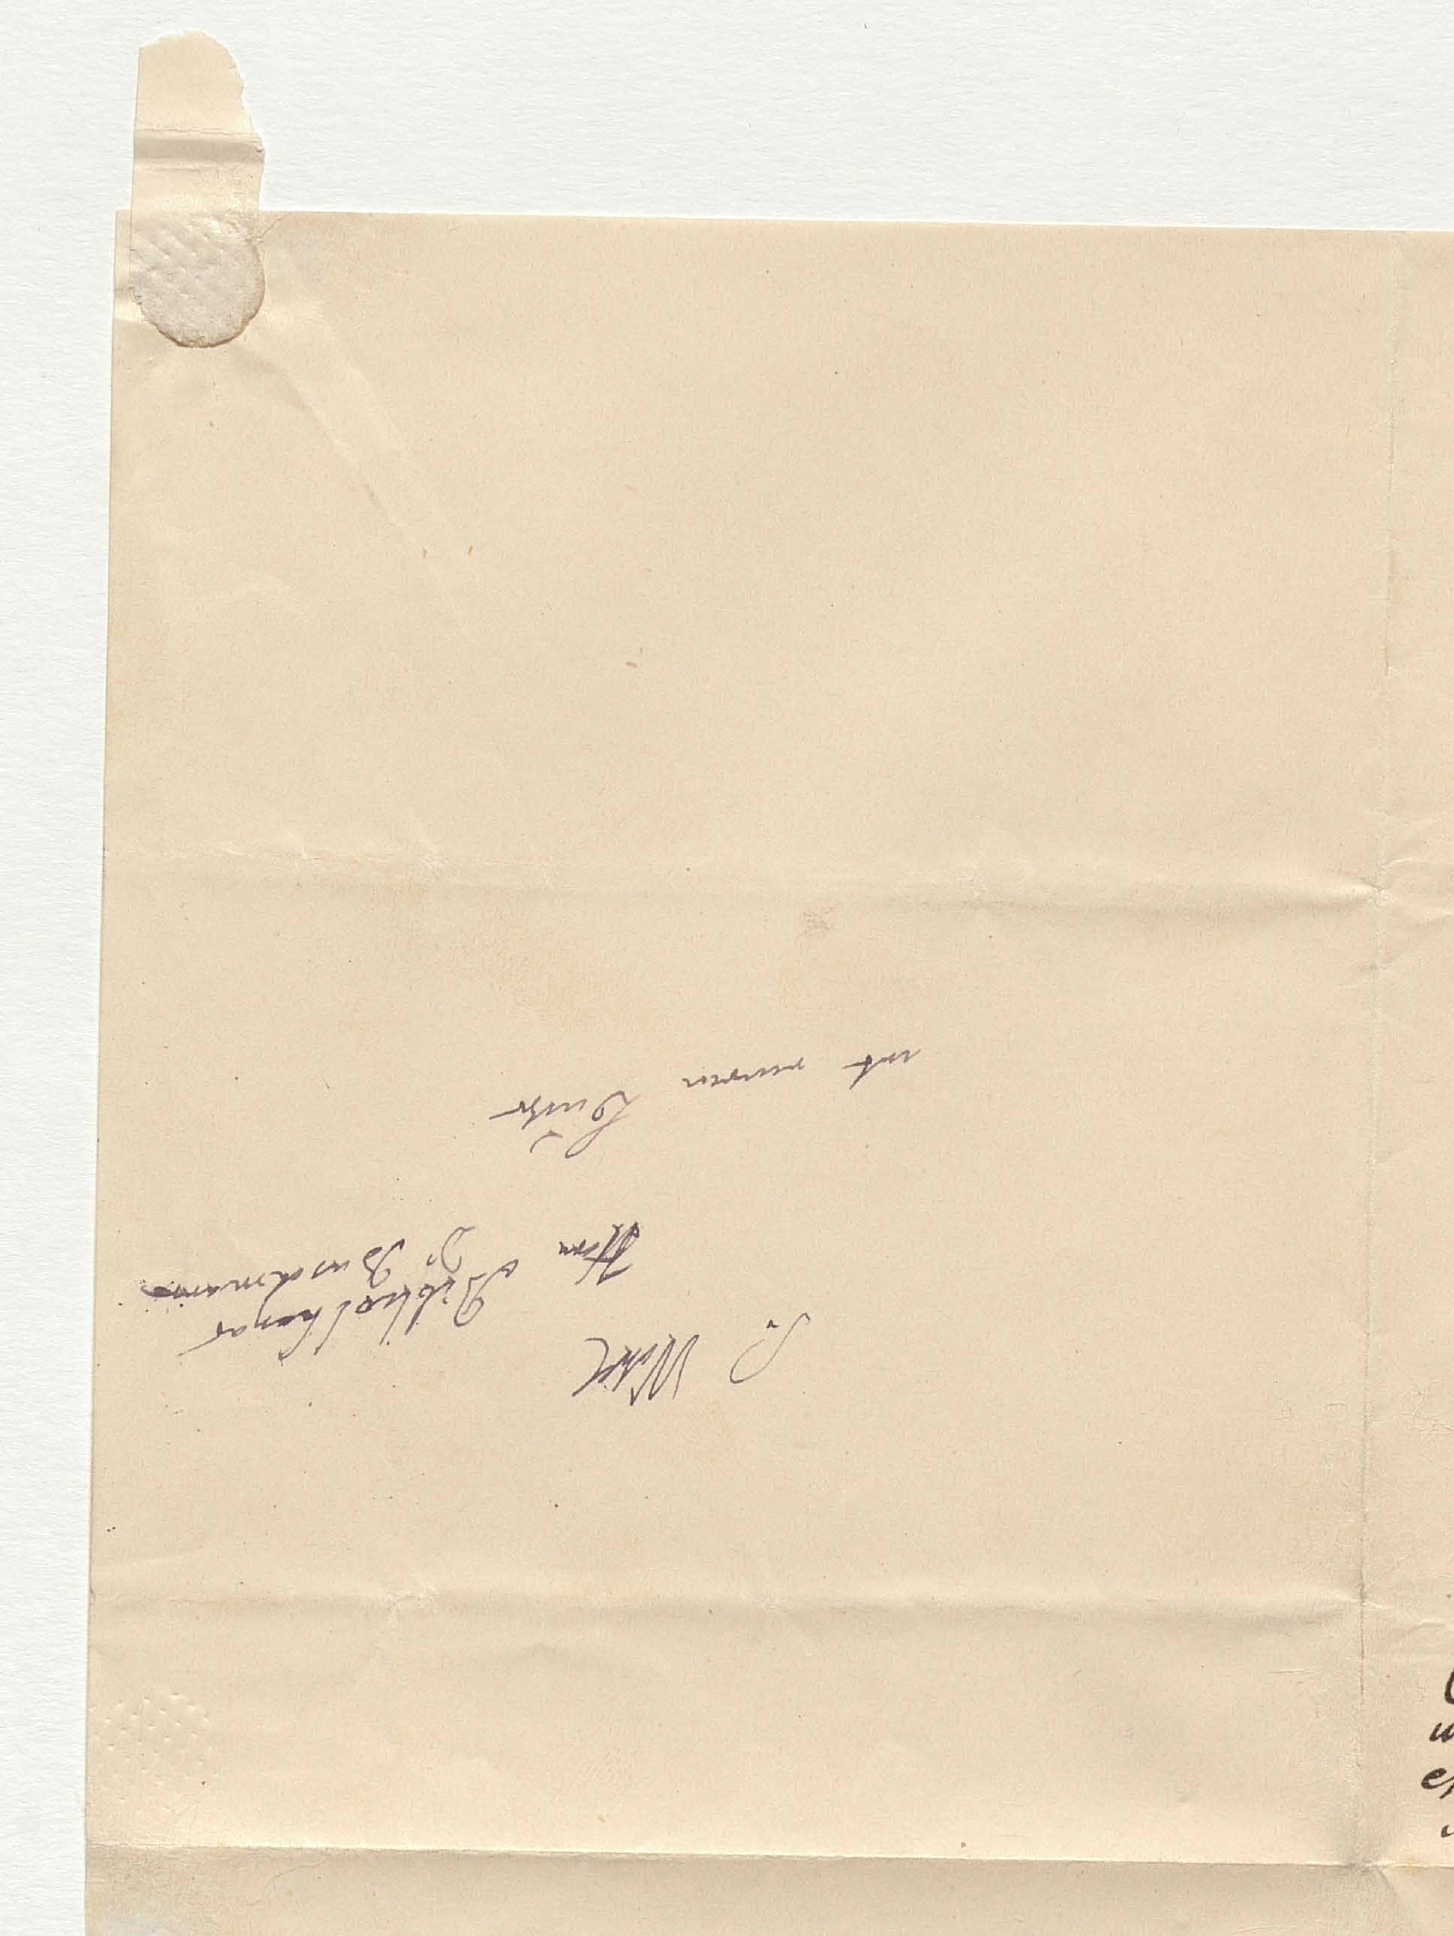 Sr. Wohl
Herrn Bibliothekar
Dr. Buschmann
mit einem Buche